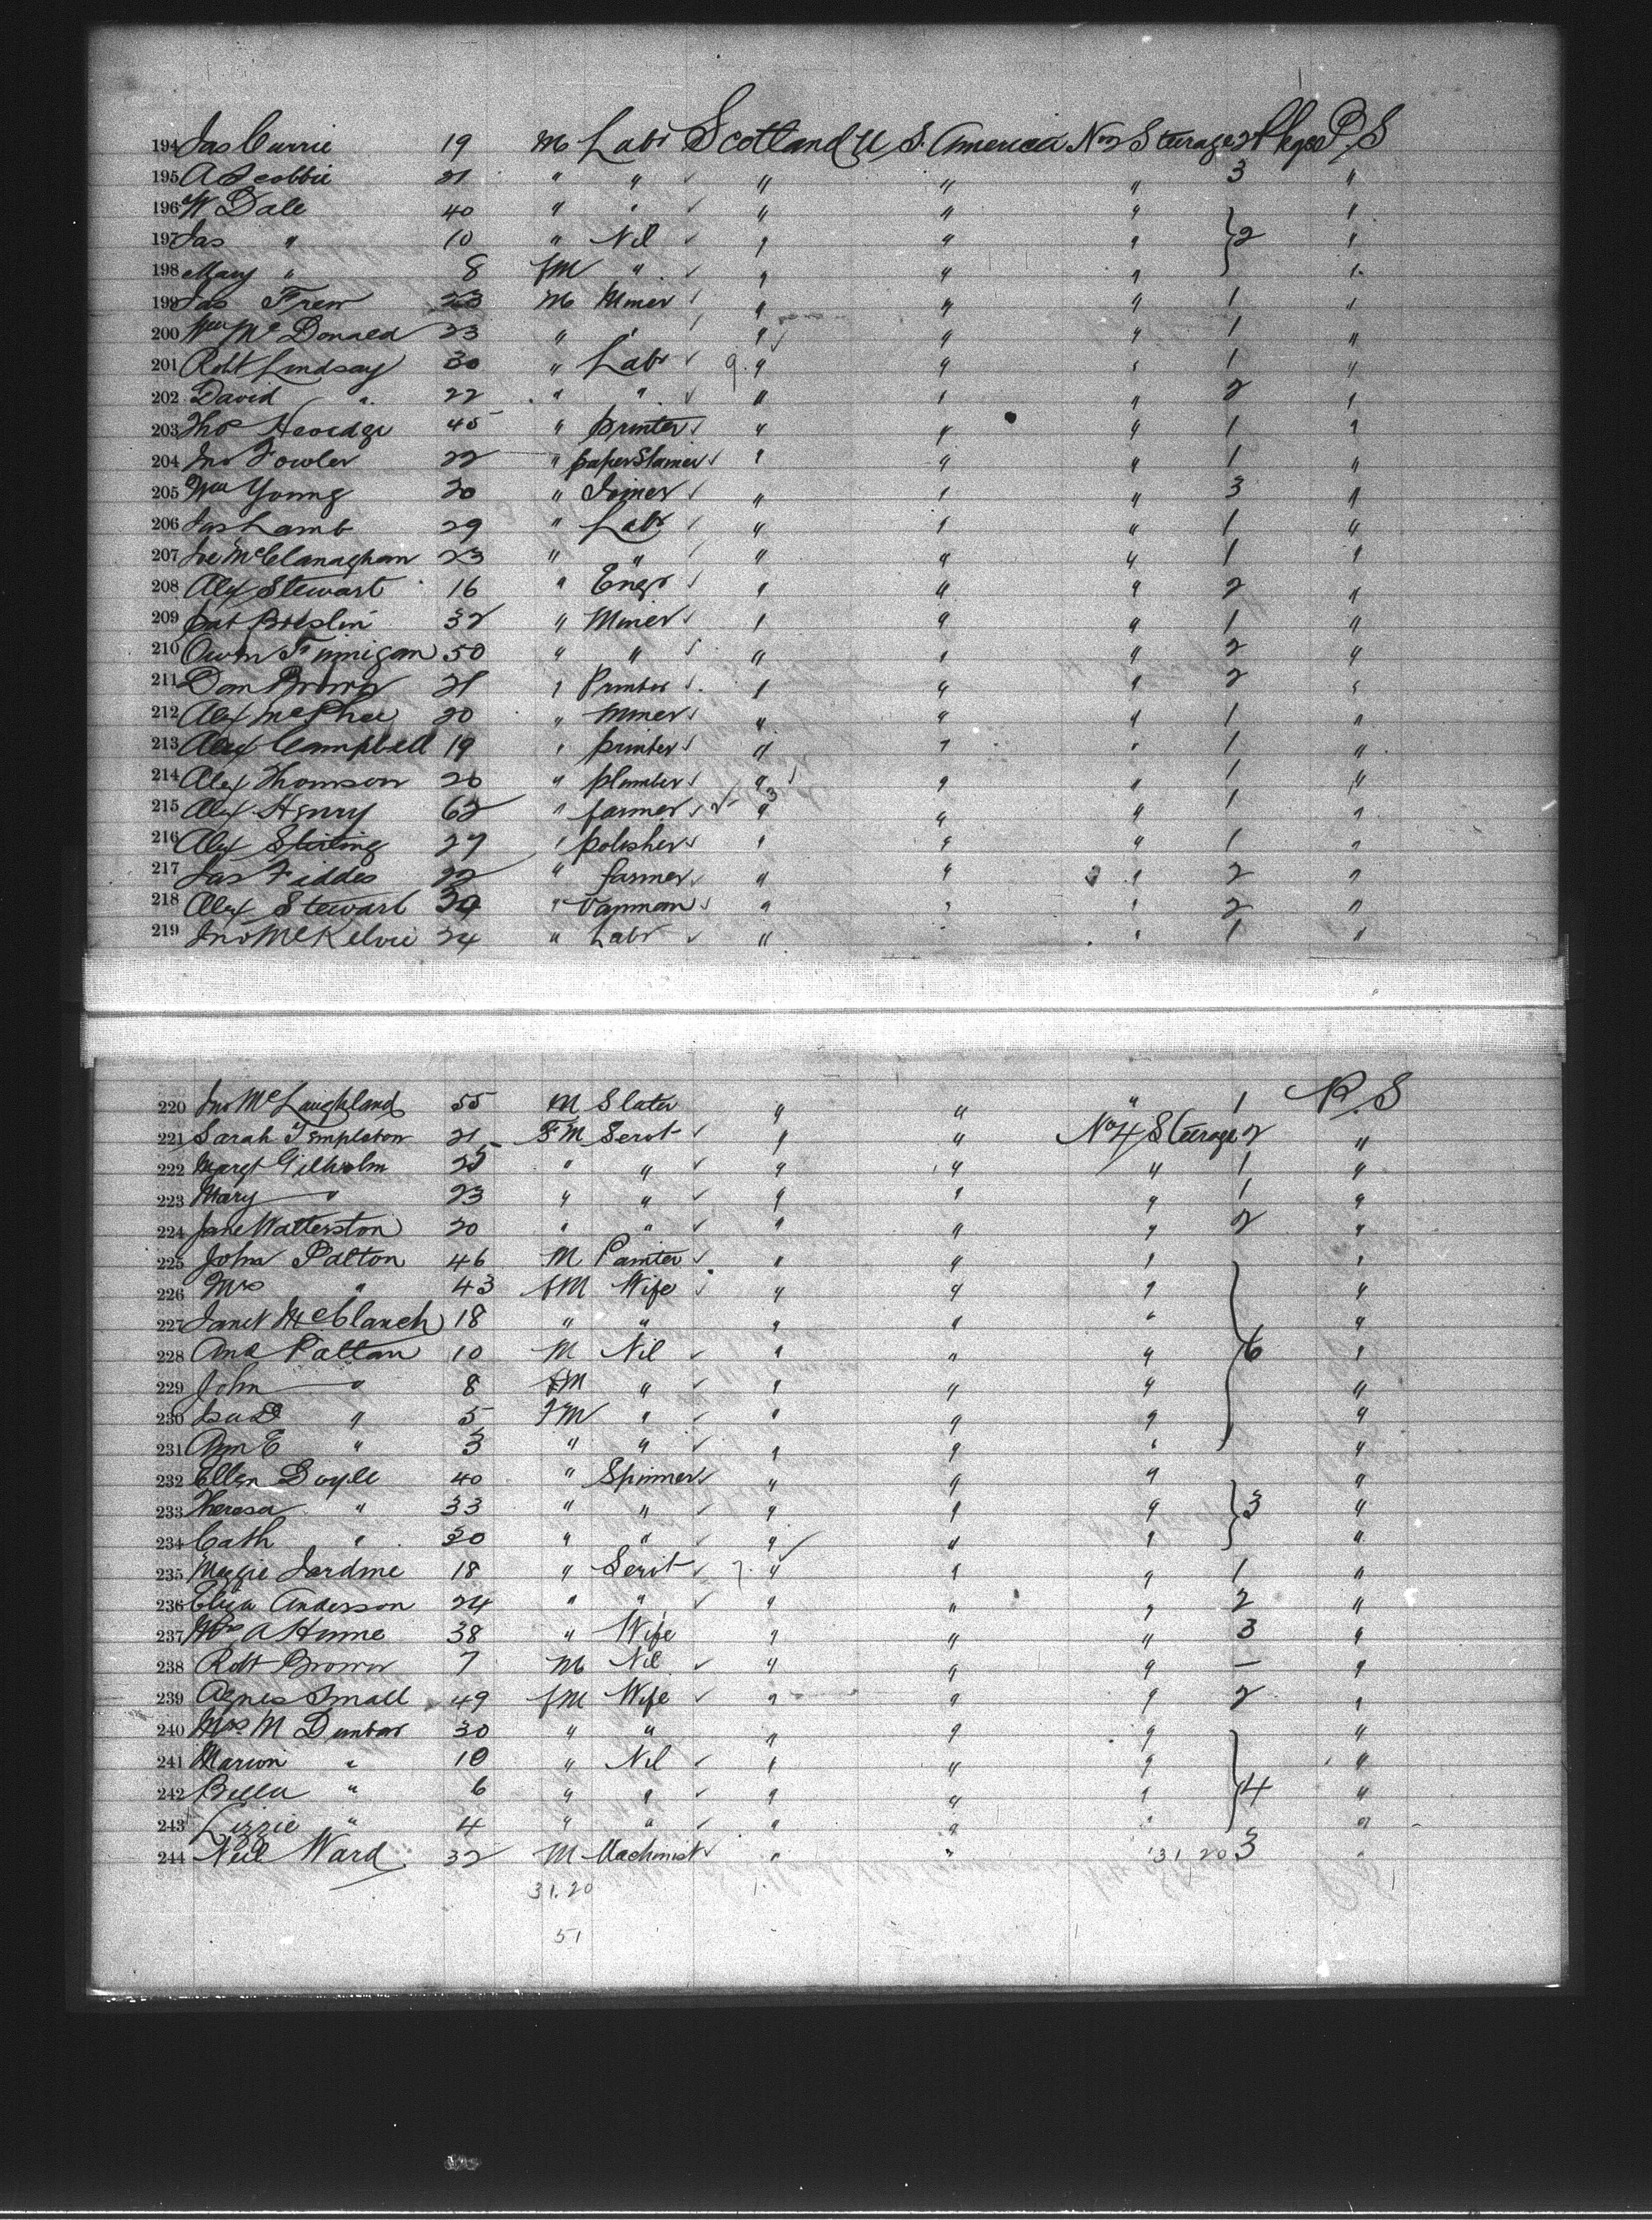 194 Jas Currie 19 M Labr Scotland U. S. America No 2 Steerage 2 Pkges P. S
195 A Scobbie 21 " " " " " 3 "
196 W Dale 40 " " " " " "
197 Jas " 10 " Nil " " " } 2 "
198 Mary " 8 fM " " " " "
199 Jas Frew 23 M Miner " " " 1 "
200 Wm McDonald 23 " " " " " 1 "
201 Robt Lindsay 30 " Labr 9. " " " 1 "
202 David " 22 " " " " " 2 "
203 Thos 45 " printer " " " 1 "
204 Jno Fowler 22 " paper Stainer " " " 1 "
205 Wm Young 20 " Joiner " " " 3 "
206 Jas Lamb 29 " Labr " " " 1 "
207 Joe McClanaghan 23 " " " " " 1 "
208 Alex Stewart 16 " Engr " " " 2 "
209 Pat Breslin 32 " Miner " " " 1 "
210 Owen Finnigan 50 " " " " " 2 "
211 Dan Brown 21 " Printer " " " 2 "
212 Alex McPhee 20 " Miner " " " 1 "
213 Alex Campbell 19 " printer " " " 1 "
214 Alex Thomson 26 " plumber " " " 1 "
215 Alex Henry 62 " farmer " " " 1 "
216 Alex Stirling 27 " polisher " " " 1 "
217 Jas Fiddes 22 " farmer " " " 2 "
218 Alex Stewart " Vanman " " " 2 "
219 Jno McKelvie 24 " Labr " " " 1 "
220 Jno McLaughland 55 M Slater " " " 1 P. S
221 Sarah Templeton 21 FM Servt " " No 4 Steerage 2 "
222 Margt Gilholm 25 " " " " " 1 "
223 Mary " 23 " " " " " 1 "
224 Jane Watterston 20 " " " " " 2 "
225 John Patton 46 M Painter " " " "
226 Mrs " 43 fM Wife " " " "
227 Janet McClanch 18 " " " " " "
228 And Pattan 10 M Nil " " " } 6 "
229 John " 8 M " " " " "
230 Isa D " 5 FM " " " " "
231 Ann E " 3 " " " " " "
232 Ellen Doyle 40 " Spinner " " " "
233 Theresa " 33 " " " " " } 3 "
234 Cath " 30 " " " " " "
235 Maggie Jardine 18 " Servt 7. " " " 1 "
236 Eliza Anderson 24 " " " " " 2 "
237 Mrs A Hume 38 " Wife " " " 3 "
238 Robt Brown 7 M Nil " " " — "
239 Agnes Small 49 fM Wife " " " 2 "
240 Mrs M Dunbar 30 " " " " " "
241 Marion " 10 " Nil " " " "
242 Bella " 6 " " " " " } 4 "
243 Lizzie " 4 " " " " " "
244 Neil Ward 32 M Machinist " " 31 20 3 "
31.20
51